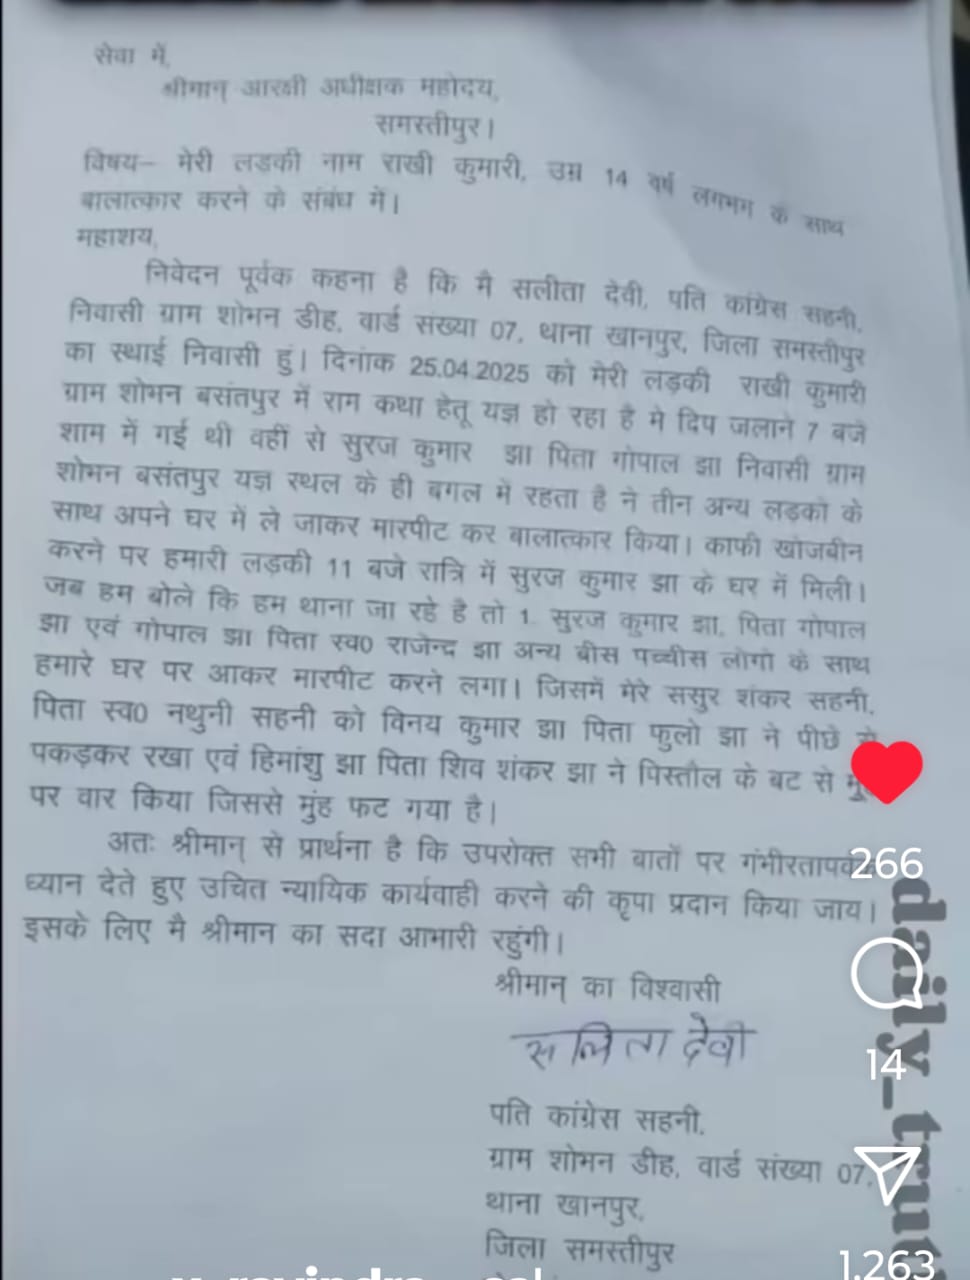 सेवा में,
श्रीमान् आरक्षी अधीक्षक महोदय,
समस्तीपुर।
विषय– मेरी लड़की नाम राखी कुमारी, उम्र 14 वर्ष लगभग के साथ
बालात्कार करने के संबंध में।
महाशय,
निवेदन पूर्वक कहना है कि मै सलीता देवी, पति कांग्रेस सहनी,
निवासी ग्राम शोभन डीह, वार्ड संख्या 07, थाना खानपुर, जिला समस्तीपुर
का स्थाई निवासी हुं। दिनांक 25.04.2025 को मेरी लड़की राखी कुमारी
ग्राम शोभन बसंतपुर में राम कथा हेतू यज्ञ हो रहा है मे दिप जलाने 7 बजे
शाम में गई थी वहीं से सुरज कुमार झा पिता गोपाल झा निवासी ग्राम
शोभन बसंतपुर यज्ञ स्थल के ही बगल में रहता है ने तीन अन्य लड़को के
साथ अपने घर में ले जाकर मारपीट कर बालात्कार किया। काफी खोजबीन
करने पर हमारी लड़की 11 बजे रात्रि में सुरज कुमार झा के घर में मिली।
जब हम बोले कि हम थाना जा रहे है तो 1. सुरज कुमार झा, पिता गोपाल
झा एवं गोपाल झा पिता स्व0 राजेन्द्र झा अन्य बीस पच्चीस लोगों के साथ
हमारे घर पर आकर मारपीट करने लगा। जिसमें मेरे ससुर शंकर सहनी,
पिता स्व0 नथुनी सहनी को विनय कुमार झा पिता फुलो झा ने पीछे से
पकड़कर रखा एवं हिमांशु झा पिता शिव शंकर झा ने पिस्तौल के बट से
पर वार किया जिससे मुंह फट गया है।
अतः श्रीमान् से प्रार्थना है कि उपरोक्त सभी बातों पर गंभीरतापर्वक
ध्यान देते हुए उचित न्यायिक कार्यवाही करने की कृपा प्रदान किया जाय।
इसके लिए मै श्रीमान का सदा आभारी रहुंगी।
श्रीमान् का विश्वासी
सलिता देवी
पति कांग्रेस सहनी,
ग्राम शोभन डीह, वार्ड संख्या 07,
थाना खानपुर,
जिला समस्तीपुर
266
14
1,263
daily_trut